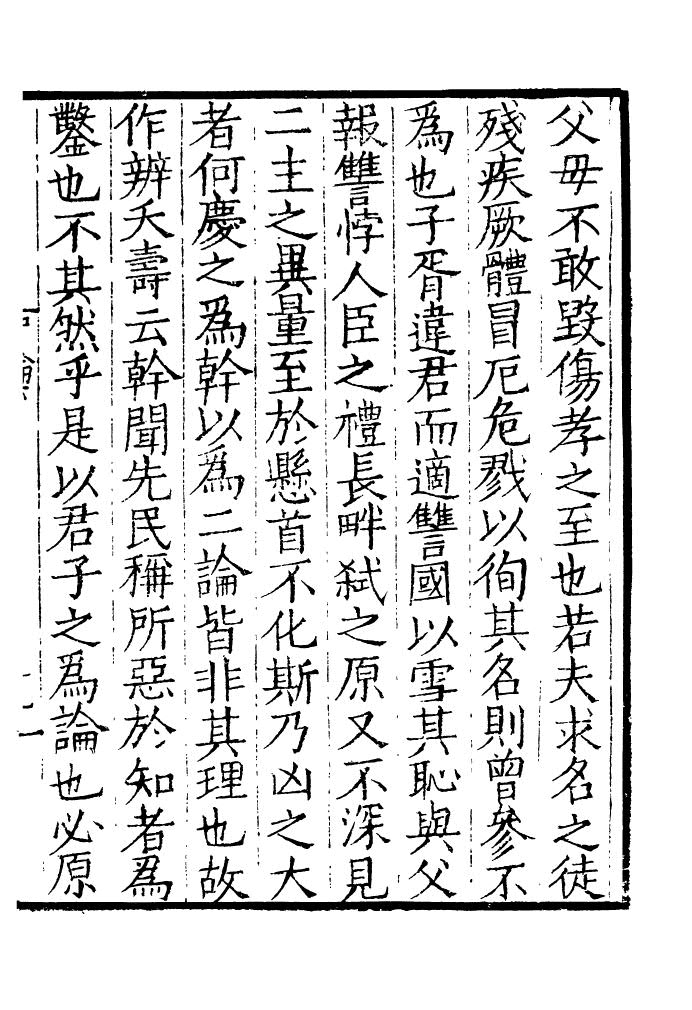 父母不敢毀傷孝之至也若夫求名之徒
殘疾厥體冒厄危戮以徇其名則曾參不
爲也子胥違君而適讐國以雪其恥與父
報讐悖人臣之禮長畔弑之原又不深見
二主之異量至於懸首不化斯乃凶之大
者何慶之爲幹以爲二論皆非其理也故
作辨夭壽云幹聞先民稱所惡於知者爲
鑿也不其然乎是以君子之爲論也必原